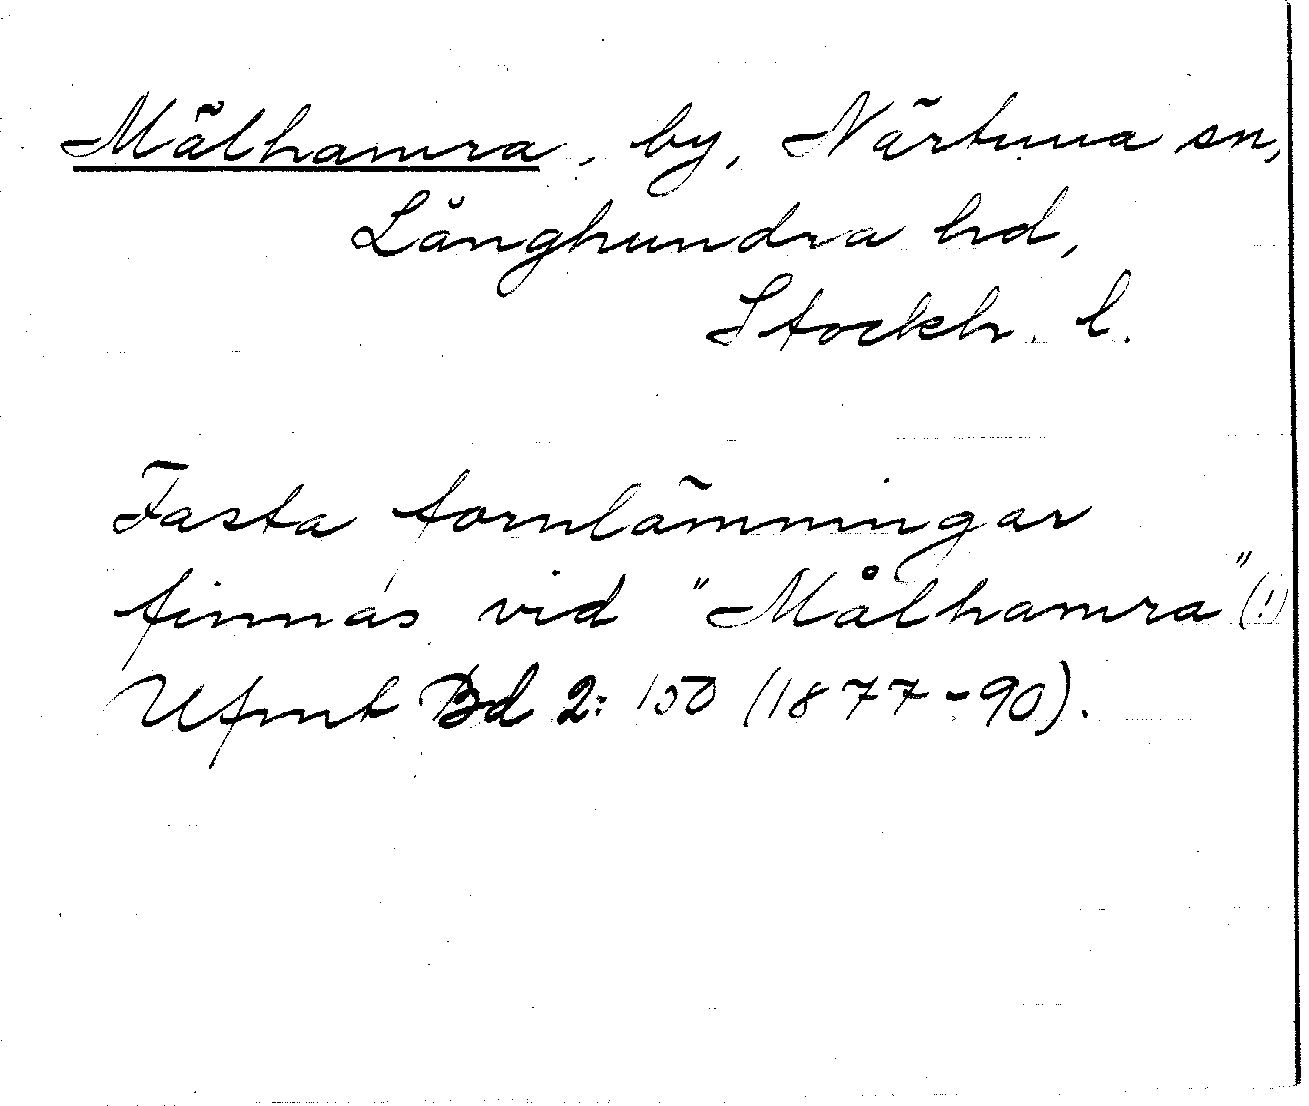 Mälhamra, by, Närtuna sn,
Långhundra hd,
Stockh. l.
Fasta fornlämningar
finnas vid "Målhamra" (!)
Ufmt Bd 2: 150 (1877-90).